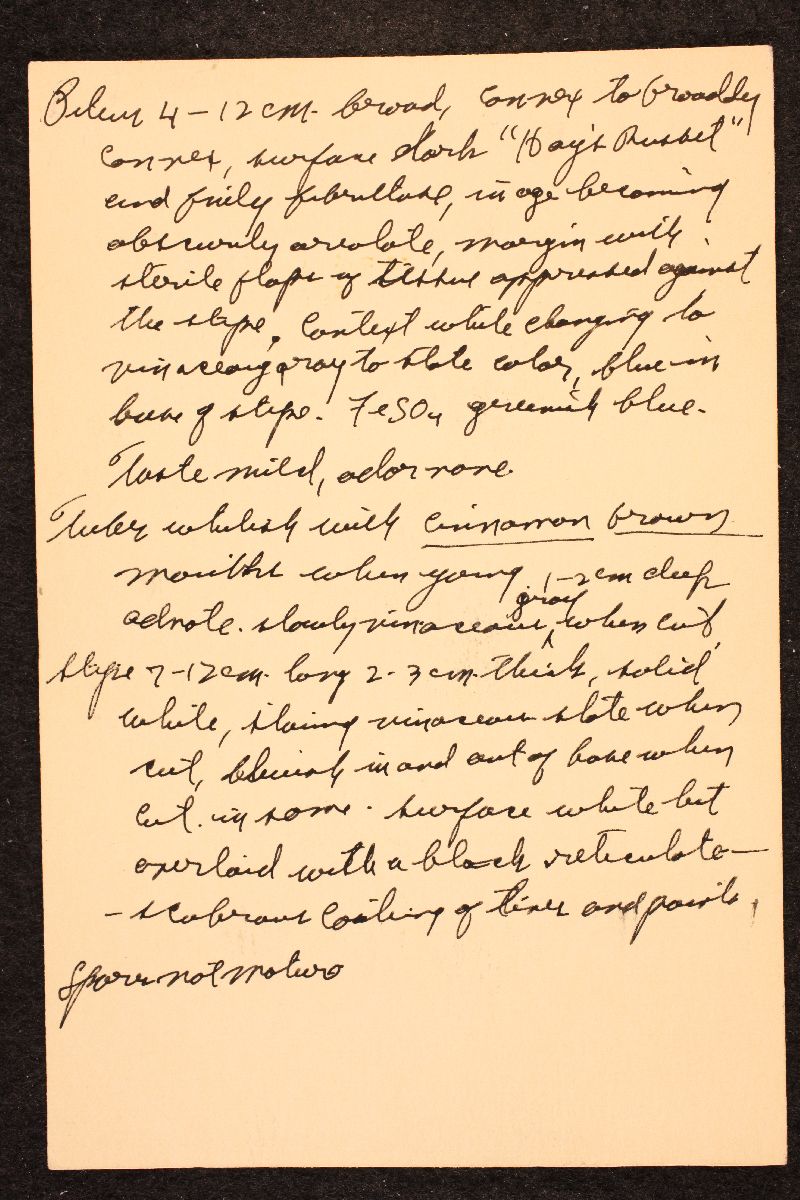 Pileus 4-12 cm. broad, convex to broadly
convex, surface dark "Hay's Russet"
and finely fibrillose, in age becoming
obscurely areolate, margin with
sterile flaps of tissue appressed against
the stipe. Context white changing to
vinaceous gray to slate color, blue in
base of stipe. FeSO4 greenish blue.
Taste mild, odor none.
Tubes whitish with cinnamon brown
mouths when young, 1-2 cm deep
adnate. slowly vinaceous gray when cut,
stipe 7-12 cm. long 2-3 cm. thick, solid
white, staining vinaceous slate when
cut, bluish in and out of base when
cut. in some. surface white but
overlaid with a black reticulate-
-scabrous coating of lines and points,
Spores not mature